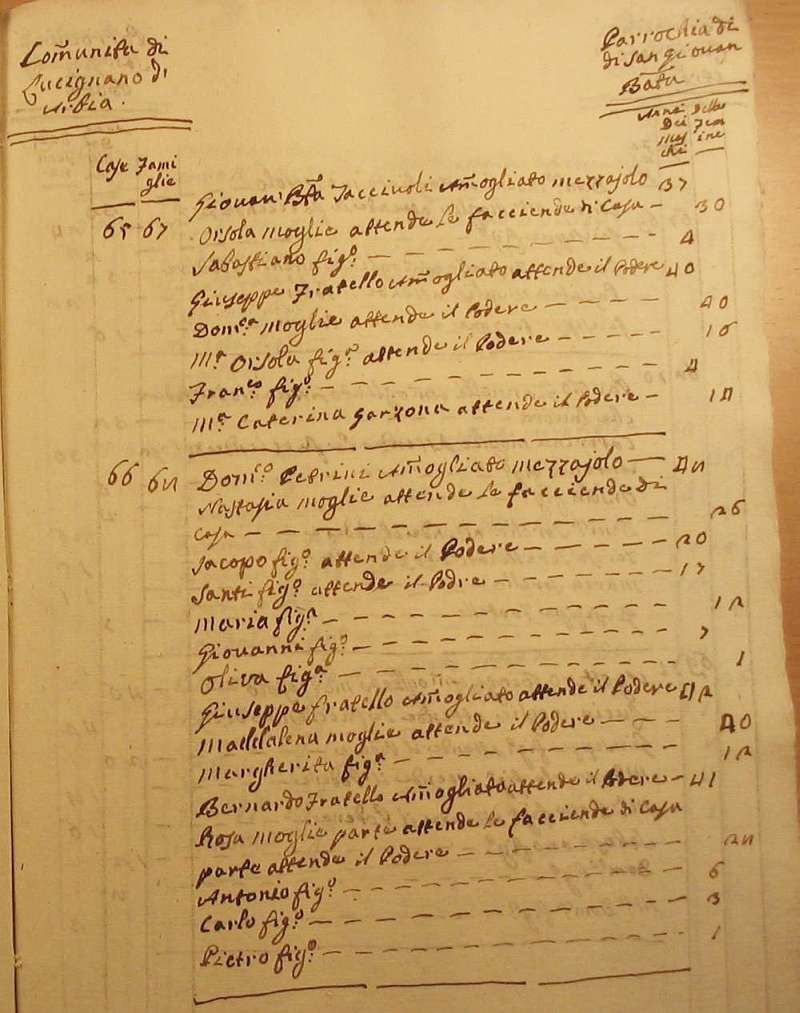 Com̃unita di
Lucignano d'
Arbia.
Parrochia di
di San Giovan
Bata
Case Fami
glie
Anni
Dei
Mas
chi
Delle
Fem
ine
65 67 Giovan Bta Jaccivoli Am̃ogliato mezzajolo 37
Orsola moglie attende le facciende di Casa — 30
Sabastiano figo 4
Giuseppe Fratello Am̃ogliato attende il Podere 40
Domca moglie attende il Podere 40
Ma Orsola figa attende il Podere 16
Franco figo 4
Ma Caterina Garzona attende il Podere — 14
66 68 Domco Petrini Am̃ogliato mezzajolo 48
Nastasia moglie attende le facciende di
Casa
Jacopo figo attende il Podere 26
Santi figo attende il Podre 20
Maria figa 17
Giovanni figo 12
Oliva figa 7
Giuseppe fratello Am̃ogliato attende il Podere 42
Maddalena moglie attende il Podere 40
Margherita figa 12
Bernardo Fratello Am̃ogliato attende il Podere — 41
Rosa moglie parte attende le facciende di Casa
parte attende il Podere 28
Antonio figo 6
Carlo figo 3
Pietro figo 1